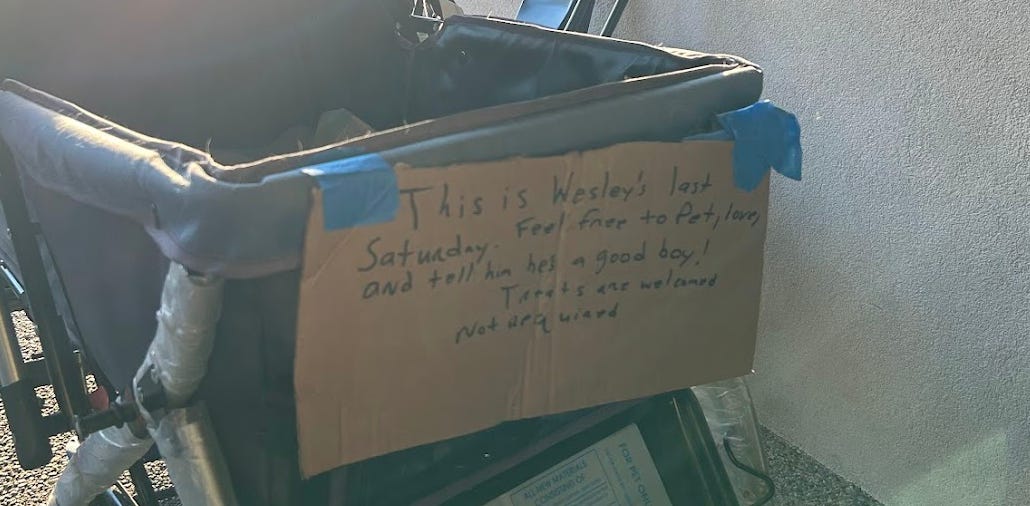 This is Wesley's last
Saturday. Feel free to Pet, love,
and tell him he's a good boy!
Treats are welcomed
Not required
FOR PET ONL
ALL NEW MATERIALS
CONSISTING OF